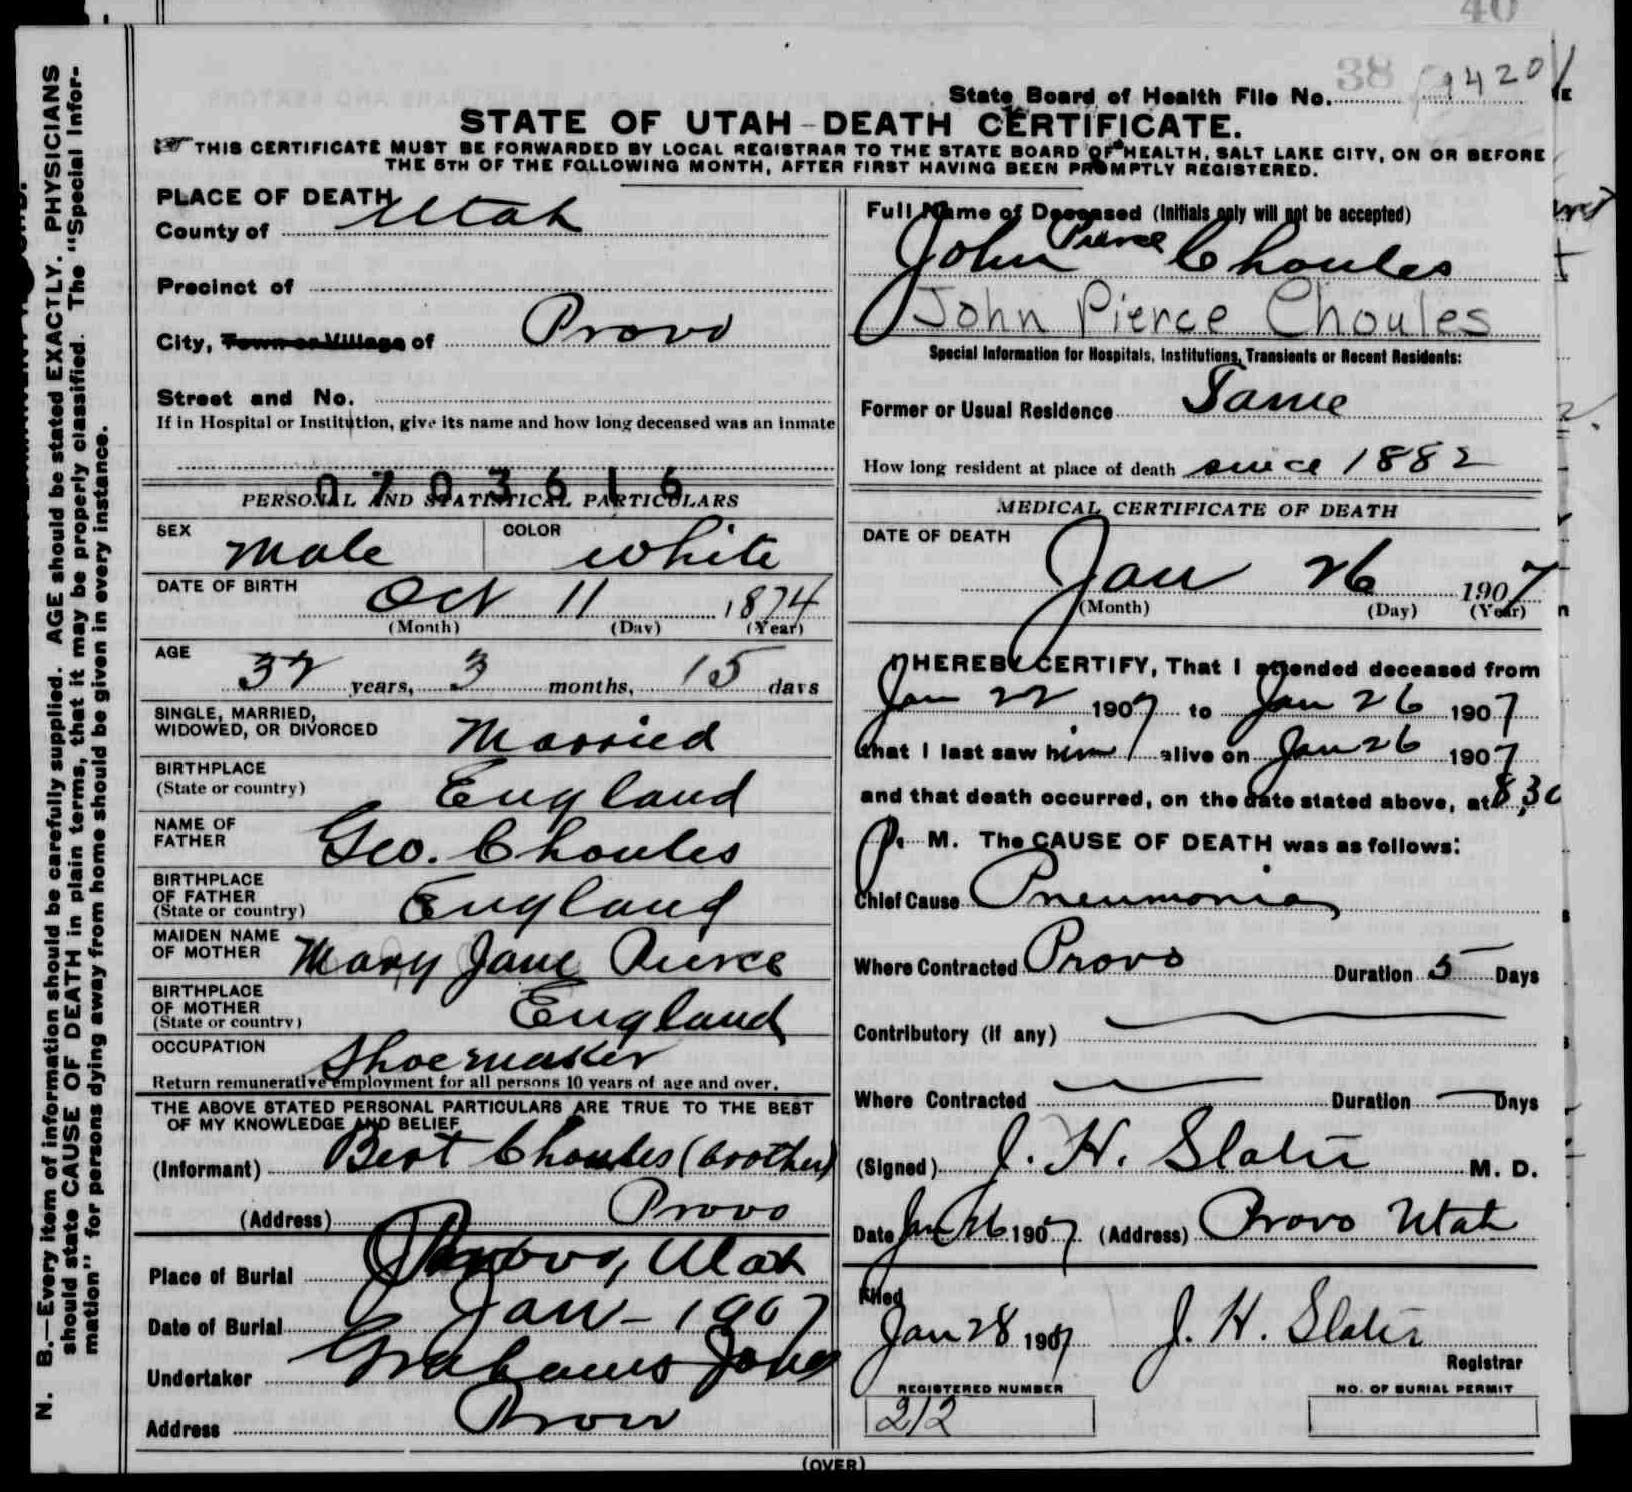 40
38
State Board of Health File No. 9420
STATE OF UTAH-DEATH CERTIFICATE.
THIS CERTIFICATE MUST BE FORWARDED BY LOCAL REGISTRAR TO THE STATE BOARD OF HEALTH, SALT LAKE CITY, ON OR BEFORE
THE 5TH OF THE FOLLOWING MONTH, AFTER FIRST HAVING BEEN PROMPTLY REGISTERED.
N. B.—Every item of information should be carefully supplied. AGE should be stated EXACTLY. PHYSICIANS
should state CAUSE OF DEATH in plain terms, that it may be properly classified. The "Special Infor-
mation" for persons dying away from home should be given in every instance.
PLACE OF DEATH
County of Utah
Precinct of
City, Town or Village of Provo
Street and No.
If in Hospital or Institution, give its name and how long deceased was an inmate
0703616
PERSONAL AND STATISTICAL PARTICULARS
SEX Male COLOR White
DATE OF BIRTH Oct 11 1874
(Month) (Day) (Year)
AGE 32 years, 3 months, 15 days
SINGLE, MARRIED,
WIDOWED, OR DIVORCED Married
BIRTHPLACE
(State or country) England
NAME OF
FATHER Geo. Choules
BIRTHPLACE
OF FATHER
(State or country) England
MAIDEN NAME
OF MOTHER Mary Jane Pierce
BIRTHPLACE
OF MOTHER
(State or country) England
OCCUPATION Shoemaker
Return remunerative employment for all persons 10 years of age and over.
THE ABOVE STATED PERSONAL PARTICULARS ARE TRUE TO THE BEST
OF MY KNOWLEDGE AND BELIEF
(Informant) Bert Choules (brother)
(Address) Provo
Place of Burial Provo, Utah
Date of Burial Jan - 1907
Undertaker Grahams Jones
Address Provo
Full Name of Deceased (Initials only will not be accepted)
John Pierce Choules
John Pierce Choules
Special Information for Hospitals, Institutions, Transients or Recent Residents:
Former or Usual Residence Same
How long resident at place of death since 1882
MEDICAL CERTIFICATE OF DEATH
DATE OF DEATH
Jan 26 1907
(Month) (Day) (Year)
I HEREBY CERTIFY, That I attended deceased from
Jan 22 1907 to Jan 26 1907
that I last saw him alive on Jan 26 1907
and that death occurred, on the date stated above, at 8,30
P. M. The CAUSE OF DEATH was as follows:
Chief Cause Pneumonia
Where Contracted Provo Duration 5 Days
Contributory (if any)
Where Contracted Duration Days
(Signed) J. H. Slater M. D.
Date Jan 26 1907 (Address) Provo Utah
Filed
Jan 28 1907 J. H. Slater
Registrar
REGISTERED NUMBER NO. OF BURIAL PERMIT
212
(OVER)